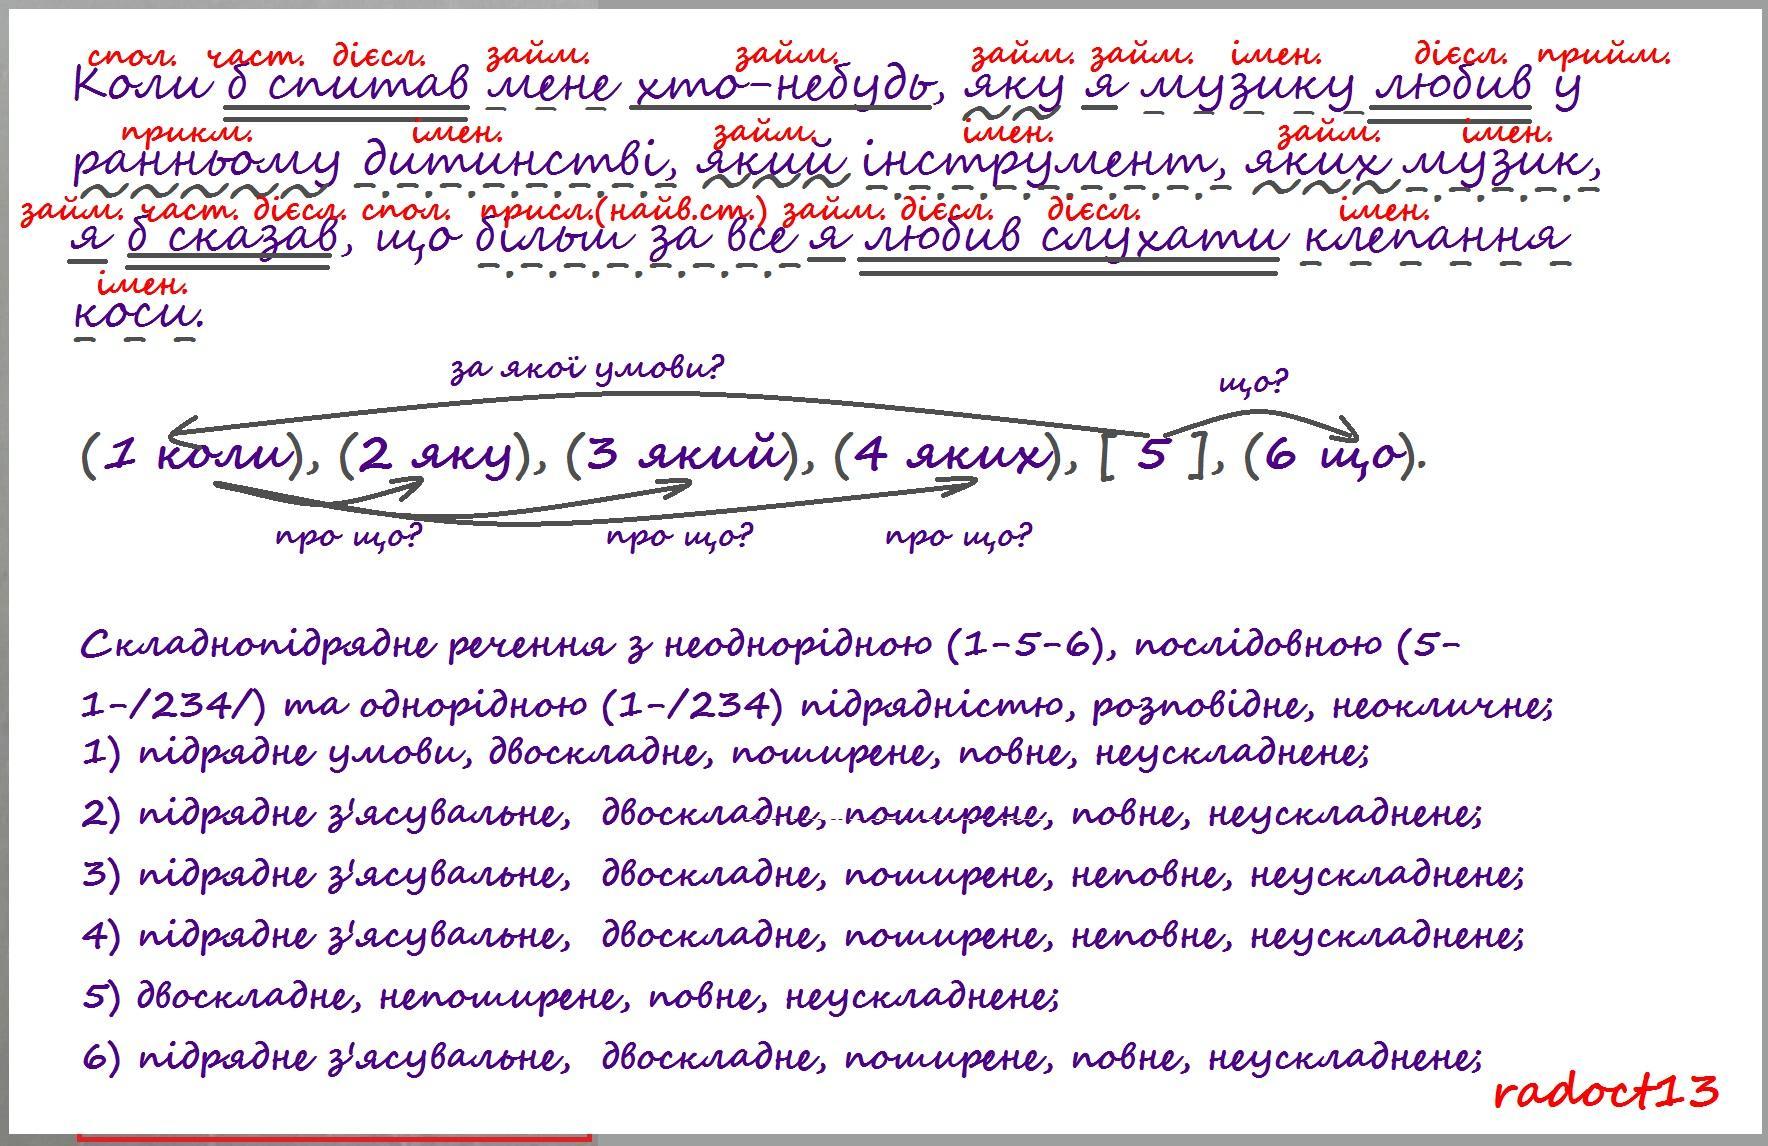 спол. част. дієсл. займ. займ. займ. займ. імен. дієсл. прийм.
Коли б спитав мене хто-небудь, яку я музику любив у
прикм. імен. займ. імен. займ. імен.
ранньому дитинстві, який інструмент, яких музик,
займ. част. дієсл. спол. присл.(найв.ст.) займ. дієсл. дієсл. імен.
я б сказав, що більш за все я любив слухати клепання
імен.
коси.
за якої умови? що?
(1 коли), (2 яку), (3 який), (4 яких), [ 5 ], (6 що).
про що? про що? про що?
Складнопідрядне речення з неоднорідною (1-5-6), послідовною (5-
1-/234/) та однорідною (1-/234) підрядністю, розповідне, неокличне;
1) підрядне умови, двоскладне, поширене, повне, неускладнене;
2) підрядне з'ясувальне, двоскладне, поширене, повне, неускладнене;
3) підрядне з'ясувальне, двоскладне, поширене, неповне, неускладнене;
4) підрядне з'ясувальне, двоскладне, поширене, неповне, неускладнене;
5) двоскладне, непоширене, повне, неускладнене;
6) підрядне з'ясувальне, двоскладне, поширене, повне, неускладнене;
radoct13